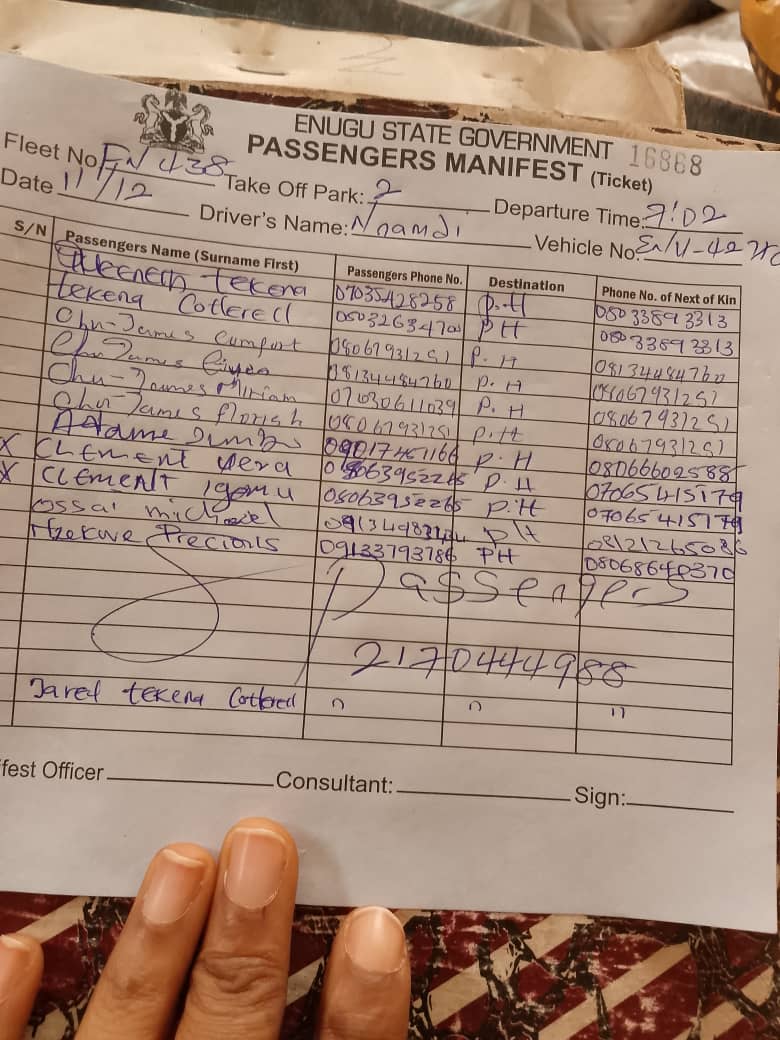 ENUGU STATE GOVERNMENT 16868
PASSENGERS MANIFEST (Ticket)
Fleet No EN 438 Take Off Park: 2 Departure Time: 9:02
Date 11/12 Driver's Name: Nnamdi Vehicle No.
S/N Passengers Name (Surname First) Passengers Phone No. Destination Phone No. of Next of Kin
tekena 07035428258 P.H 08033893313
tekena Cotlerell PH 08033893313
Ohu-James comfort 08067931251 P.H 08134484760
James 08134484760 P.H 08067931251
Ohu-James Miriam 07030611039 P.H 08067931251
Ohu-James florish 08067931251 P.H 08067931251
09017451166 P.H 08066602588
X Clement vera 08063952265 P.H 07065415179
X CLEMENT 08063952265 P.H 07065415179
ossai michael PH 08121265086
Precious 09133793786 PH 08068640370
Passengers
2170444988
Jared tekena Cotlered " " "
fest Officer Consultant: Sign: